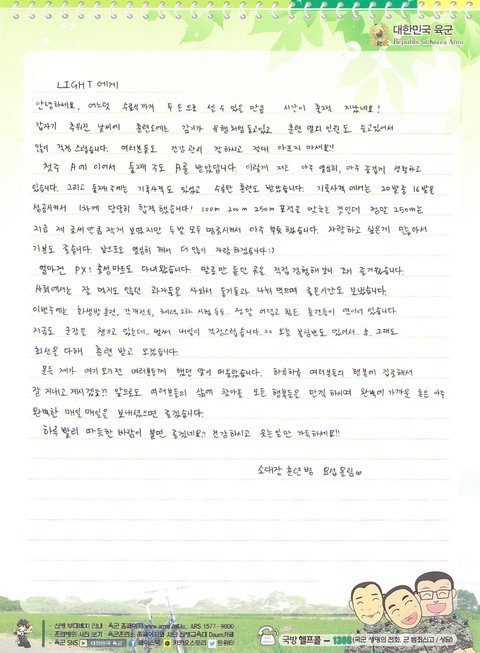 대한민국 육군
Republic of Korea Army
LIGHT 에게
안녕하세요, 어느덧 수료식까지 두 손으로 셀 수 있을 만큼 시간이 훌쩍 지났네요!
갑자기 추워진 날씨에 훈련소에는 감기가 유행처럼 돌고있고 훈련 열외 인원도 늘고있어서
많이 걱정스럽습니다. 여러분들도 건강관리 잘 하시고 절대 아프지 마세요!!
첫주 A에 이어서 둘째 주도 A를 받았답니다. 이렇게 저는 아주 열심히, 아주 즐겁게 생활하고
있습니다. 그리고 둘째 주에는 기록사격도 있었고 수류탄 훈련도 받았습니다. 기록사격에서는 20발 중 16발을
성공시켜서 1차에 당당히 합격했습니다! 100m 200m 250m 표적을 맞추는 것인데 정말 250m는
지금 제 글씨만큼 작게 보였지만 두발 모두 명중시켜서 아주 뿌듯 했습니다. 자랑하고 싶은게 많아서
기분도 좋습니다. 앞으로도 열심히 해서 더 많이 자랑하겠습니다 :)
얼마전 PX! 충성마트도 다녀왔습니다. 말로만 듣던 곳을 직접 경험해보니 꽤 즐거웠습니다.
사회에서는 잘 먹지도 않던 과자들을 사와서 동기들과 나눠 먹으며 좋은시간도 보냈습니다.
이번주에는 화생방 훈련, 각개전투, 체력 2차 시험 등등 정말 어렵고 힘든 훈련들이 연이어 있습니다.
지금도 군장은 챙기고 있는데.. 벌써 내일이 걱정스럽습니다.. ㅋㅋ 오늘 불침번도 있어서.. 흠. 그래도
최선을 다해 훈련 받고 오겠습니다.
문득 제가 여기 오기전 여러분들께 했던 말이 떠올랐습니다. 하루하루 여러분들의 행복에 집중해서
잘 지내고 계시겠죠?? 앞으로도 여러분들의 삶에 찾아올 모든 행복들을 만끽 하시며 완벽에 가까운 혹은 아주
완벽한 매일 매일을 보내셨으면 좋겠습니다.
하루 빨리 따듯한 바람이 불면 좋겠네요~ 건강하시고 웃는일만 가득하세요!!
소대장 훈련병 요섭 올림
신병 부대배치 안내 : 육군 홈페이지 www.army.mil.kr, ARS 1577 - 9600
훈련병의 사진 보기 : 육군훈련소 홈페이지와 사단 신병교육대 Daum카페
육군 SNS 대한민국 육군 페이스북 카카오스토리 트위터
국방헬프콜 - 1303 (국군 생명의 전화, 군 범죄신고 / 상담)